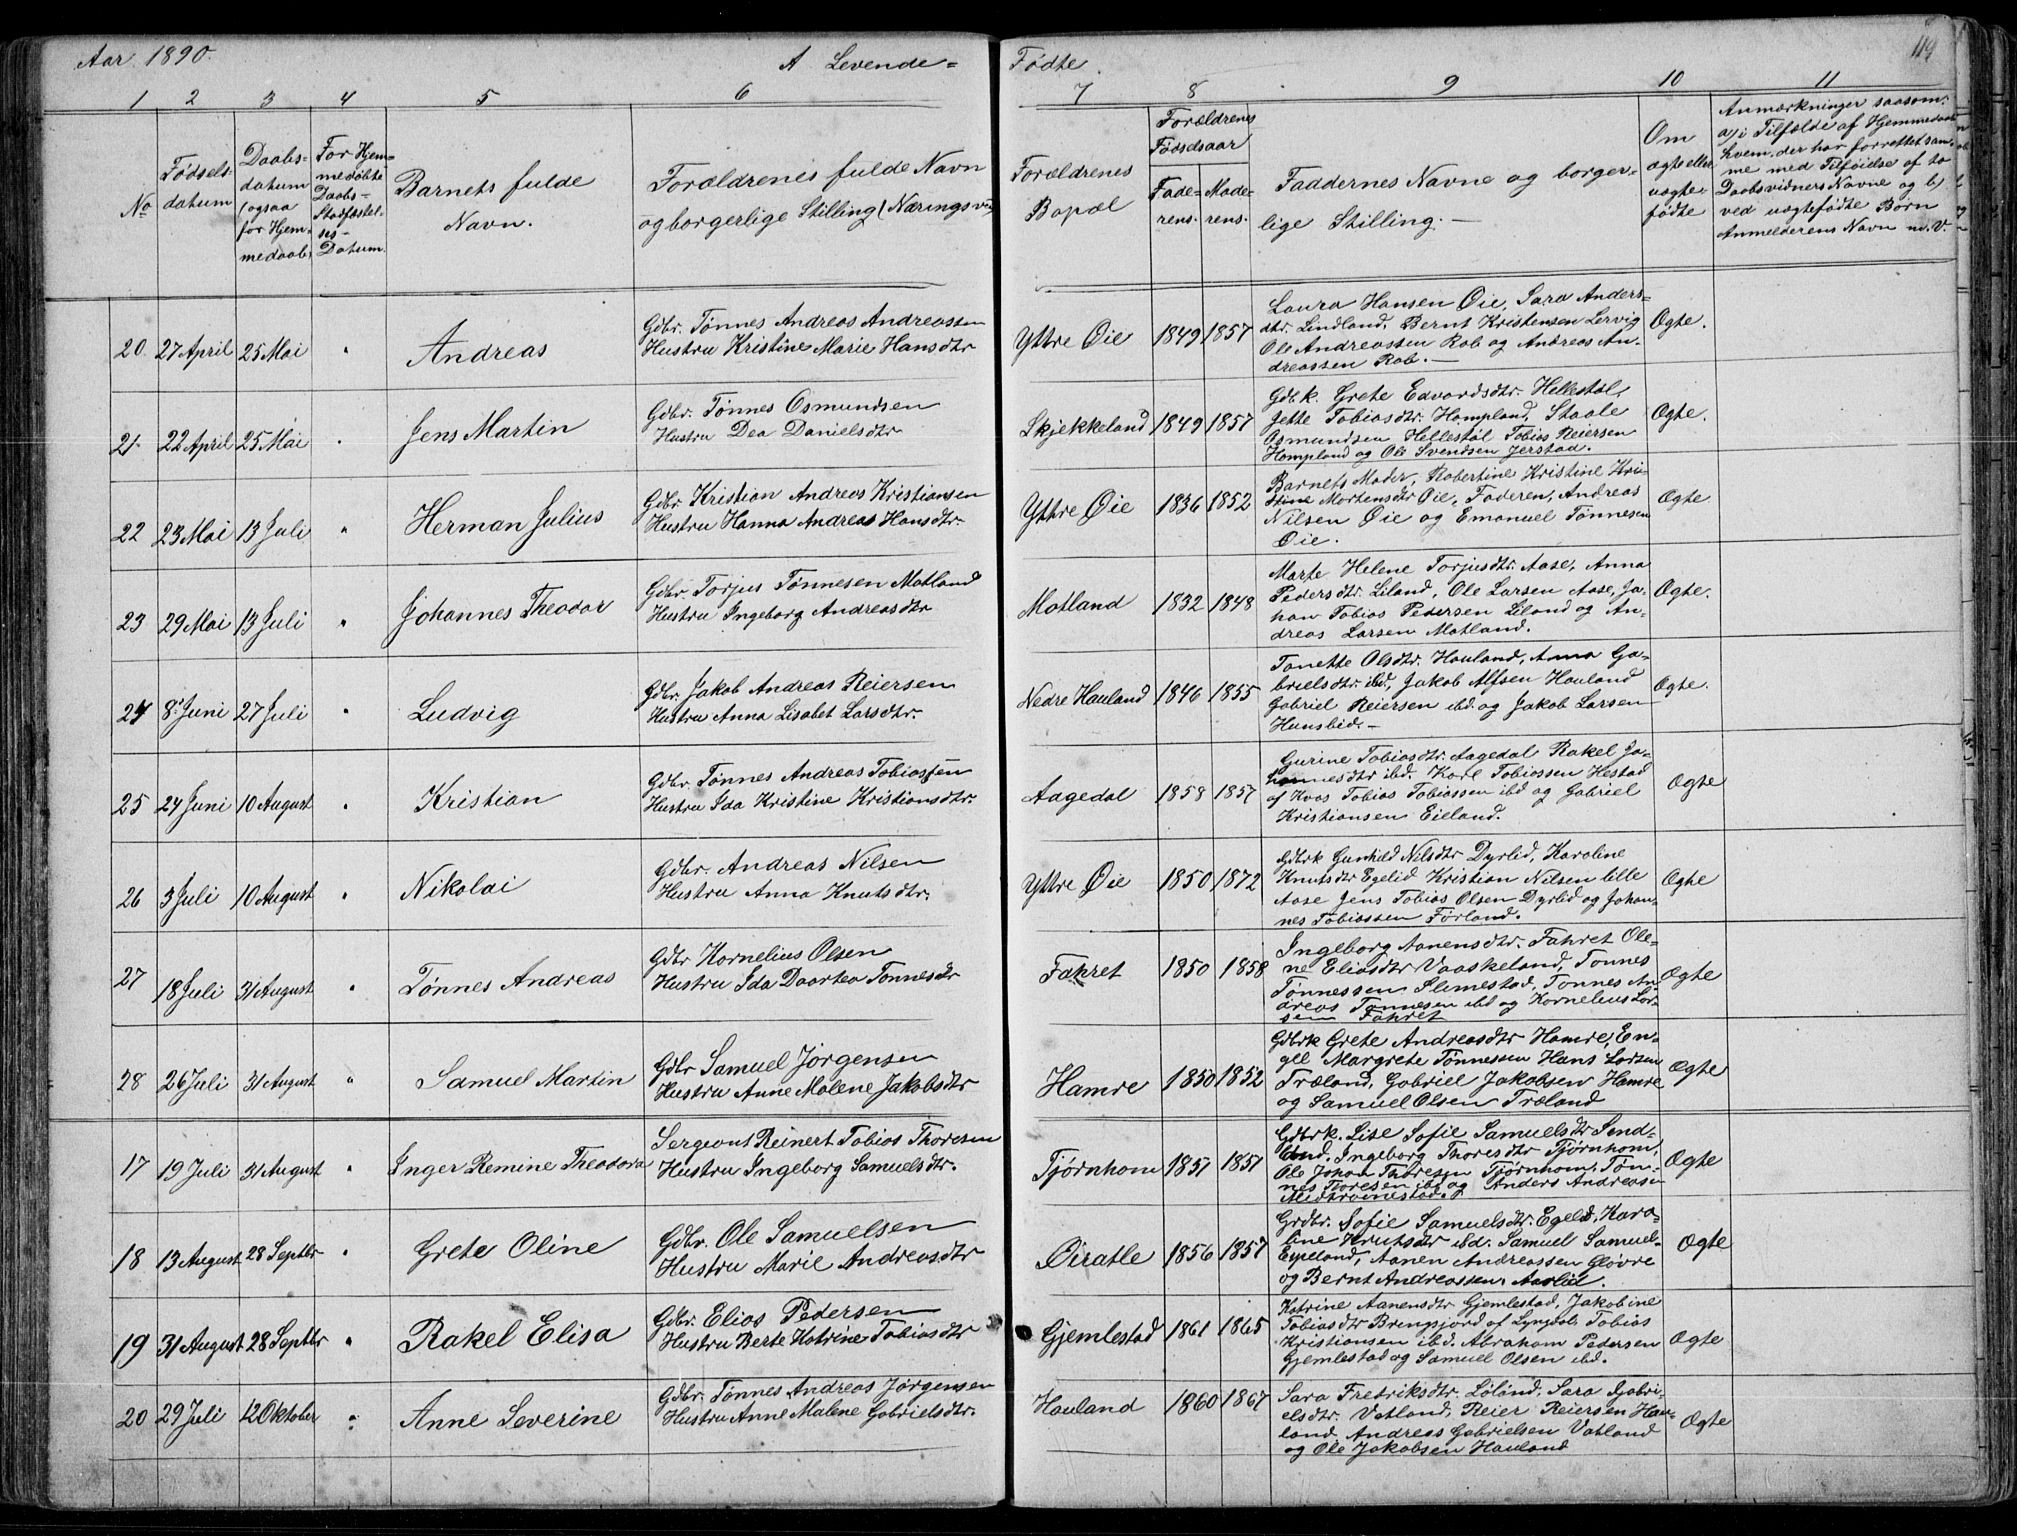 Aar 1890.
A Levende=
Fødte.
119
1 2 3 4 5 6 7 8 9 10 11
No
Fødsels-
datum
Daabs-
datum
(ogsaa
for Hjem-
medaab)
For Hjem-
medøbte
Daabs-
Stadfæstel-
ses-
Datum.
Barnets fulde
Navn.
Forældrenes fulde Navn
og borgerlige Stilling (Næringsvei)
Forældrenes
Bopæl
Forældrenes
Fødselsaar
Fade-
rens.
Mode-
rens.
Faddernes Navne og borger-
lige Stilling.—
Om
ægte eller
uægte
fødte
Anmærkninger saasom:
a) i Tilfælde af Hjemmedaab
hvem, der har forrettet sam-
me med Tilføidse af to
Daabsvidners Navne og b)
ved uægtefødte Børn
Anmelderens Navn m. V.
20. 27 April 25 Mai " Andreas
Gdbr. Tønnes Andreas Andreassen
Hustru Kristine Marie Hansdtr
Yttre Øie 1849 1857
Laura Hansen Øie, Sara Anders-
dtr. Lindland, Bernt Kristensen Lervig
Ole Andreassen Rob og Andreas An-
dreassen Rob.—
Ægte.
21. 22 April 25 Mai " Jens Martin
Gdbr. Tønnes Osmundsen
Hustru Dea Danielsdtr
Skjekkeland 1849 1857
Gdbk. Grete Edvardsdtr. Hellestøl,
Jette Tobiasdtr. Hompland, Staale
Osmundsen Hellestøl Tobias Reiersen
Hompland og Ole Svendsen Jerstad.
Ægte.
22 23 Mai 13 Juli " Herman Julius
Gdbr Kristian Andreas Kristiansen
Hustru Hanna Andrea Hansdtr.
Yttre Øie 1836 1852
Barnets Moder, Robertine Kristine Kri-
stine Mortensdtr Øie, Faderen, Andreas
Nilsen Øie og Emanuel Tønnesen
Øie.
Ægte
23 29 Mai 13 Juli " Johannes Theodor
Gdbr. Torjus Tønnesen Motland
Hustru Ingeborg Andreasdtr
Motland 1832 1848
Marte Helene Torjusdtr. Aase, Anna
Pedersdtr. Liland, Ole Larsen Aase, Jo-
han Tobias Pedersen Liland og An-
dreas Larsen Motland.
Ægte.
24 8de Juni 27 Juli " Ludvig
Gdbr. Jakob Andreas Reiersen
Hustru Anna Lisabet Larsdtr.
Nedre Hauland 1846 1855
Tonette Olsdtr. Hauland, Anna Ga-
brielsdtr. ibd, Jakob Alfsen Hauland
Gabriel Reiersen ibd. og Jakob Larsen
Hunsbed.—
Ægte.
25 24 Juni 10 August " Kristian
Gdbr Tønnes Andreas Tobiassen
Hustru Ida Kristine Kristiansdtr.
Aagedal 1858 1857
Gurine Tobiasdtr. Aagedal Rakel Jo-
hannesdtr ibd. Karl Tobiassen Hestad
af Kvas Tobias Tobiassen ibd og Gabriel
Kristiansen Eieland.
Ægte
26 3 Juli 10 August " Nikolai
Gdbr. Andreas Nilsen
Hustru Anna Knutsdtr.
Yttre Øie 1850 1872
Gdbrk Gunhild Nilsdtr Dyrlid, Karoline
Knutsdtr Egelid Kristian Nilsen lille
Aase Jens Tobias Olsen Dyrlid og Johan-
nes Tobiassen Førland.
Ægte
27 18 Juli 31 August " Tønnes Andreas
Gdbr Kornelius Olsen
Hustru Ida Daartea Tønnesdtr
Fahret 1850 1858
Ingeborg Aanensdtr. Fahret Ole-
ne Eliasdtr Vaaskeland, Tønnes
Tønnessen Slimestad, Tønnes An-
dreas Tønnesen ibd og Kornelius Lar-
sen Fahret
Ægte
28 26 Juli 31 August " Samuel Martin
Gdbr Samuel Jørgensen
Hustru Anne Malene Jakobsdtr
Hamre 1850 1852
Gdbrk Grete Andreasdtr Hamre, En-
gel Margrete Tønnessen Hans Larsen
Træland, Gabriel Jakobsen Hamre
og Samuel Olsen Træland
Ægte
17 19 Juli 31 August " Inger Remine Theodora
Sergeant Reinert Tobias Thoresen
Hustru Ingeborg Samuelsdtr.
Tjørnhom 1851 1851
Gdbrk. Lise Sofie Samuelsdtr Sand-
land. Ingeborg Thoresdtr Tjørnhom,
Ole Johan Thoresen Tjørnhom, Tøn-
nes Toresen ibd og Anders Andreasen
Ægte
18 13 August 28 Septbr " Grete Oline
Gdbr. Ole Samuelsen
Hustru Marie Andreasdtr
Øiratle 1856 1857
Grdbr. Sofie Samuelsdtr. Egeld, Karo-
line Knutsdtr ibd. Samuel Samuel-
Eyeland, Aanen Andreassen Gløvre
og Bernt Andreassen Aarlid.
Ægte
19 31 August 28 Septbr " Rakel Elisa
Gdbr. Elias Pedersen
Hustru Berte Katrine Tobiasdtr
Gjemlestad 1861 1865
Katrine Aanensdtr Gjemlestad, Jakobine
Tobiasdtr Brenpjord af Lyngdal Tobias
Kristiansen ibd. Abraham Pedersen
Gjemlestad og Samuel Olsen ibd.
Ægte
20 29 Juli 12 Oktober " Anne Severine
Gdbr. Tønnes Andreas Jørgensen
Hustru Anne Malene Gabrielsdtr.
Hauland 1860 1867
Sara Fredriksdtr. Løland, Sara Gabri-
elsdtr. Vatland, Reier Reiersen Hau-
land Andreas Gabrielsen Vatland
og Ole Jakobsen Hauland
Ægte